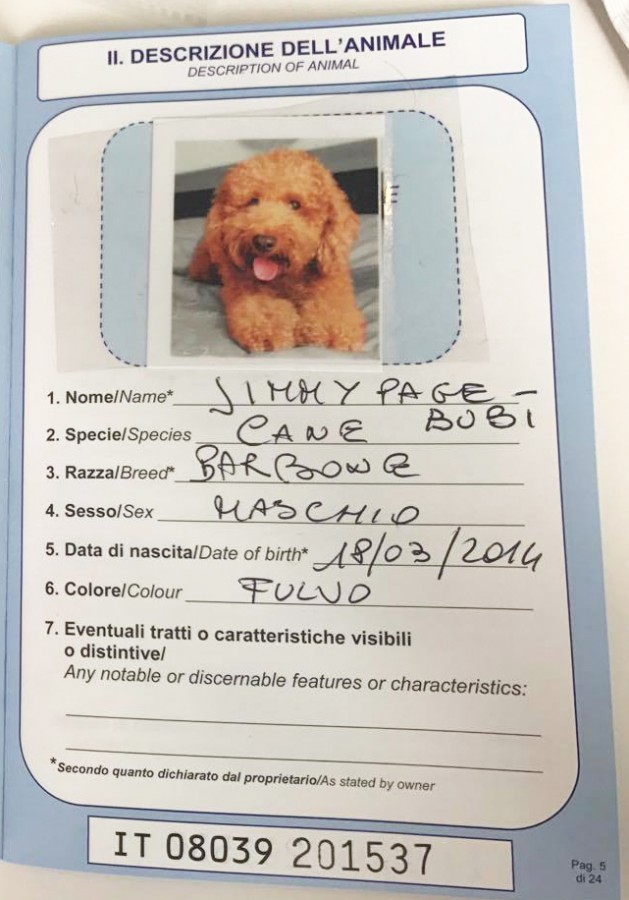 II. DESCRIZIONE DELL'ANIMALE
DESCRIPTION OF ANIMAL
1. Nome/Name* JIMMY PAGE -
BUBI
2. Specie/Species CANE
3. Razza/Breed* BARBONE
4. Sesso/Sex MASCHIO
5. Data di nascita/Date of birth* 18/03/2014
6. Colore/Colour FULVO
7. Eventuali tratti o caratteristiche visibili
o distintive/
Any notable or discernable features or characteristics:
*Secondo quanto dichiarato dal proprietario/As stated by owner
IT 08039 201537
Pag. 5
di 24